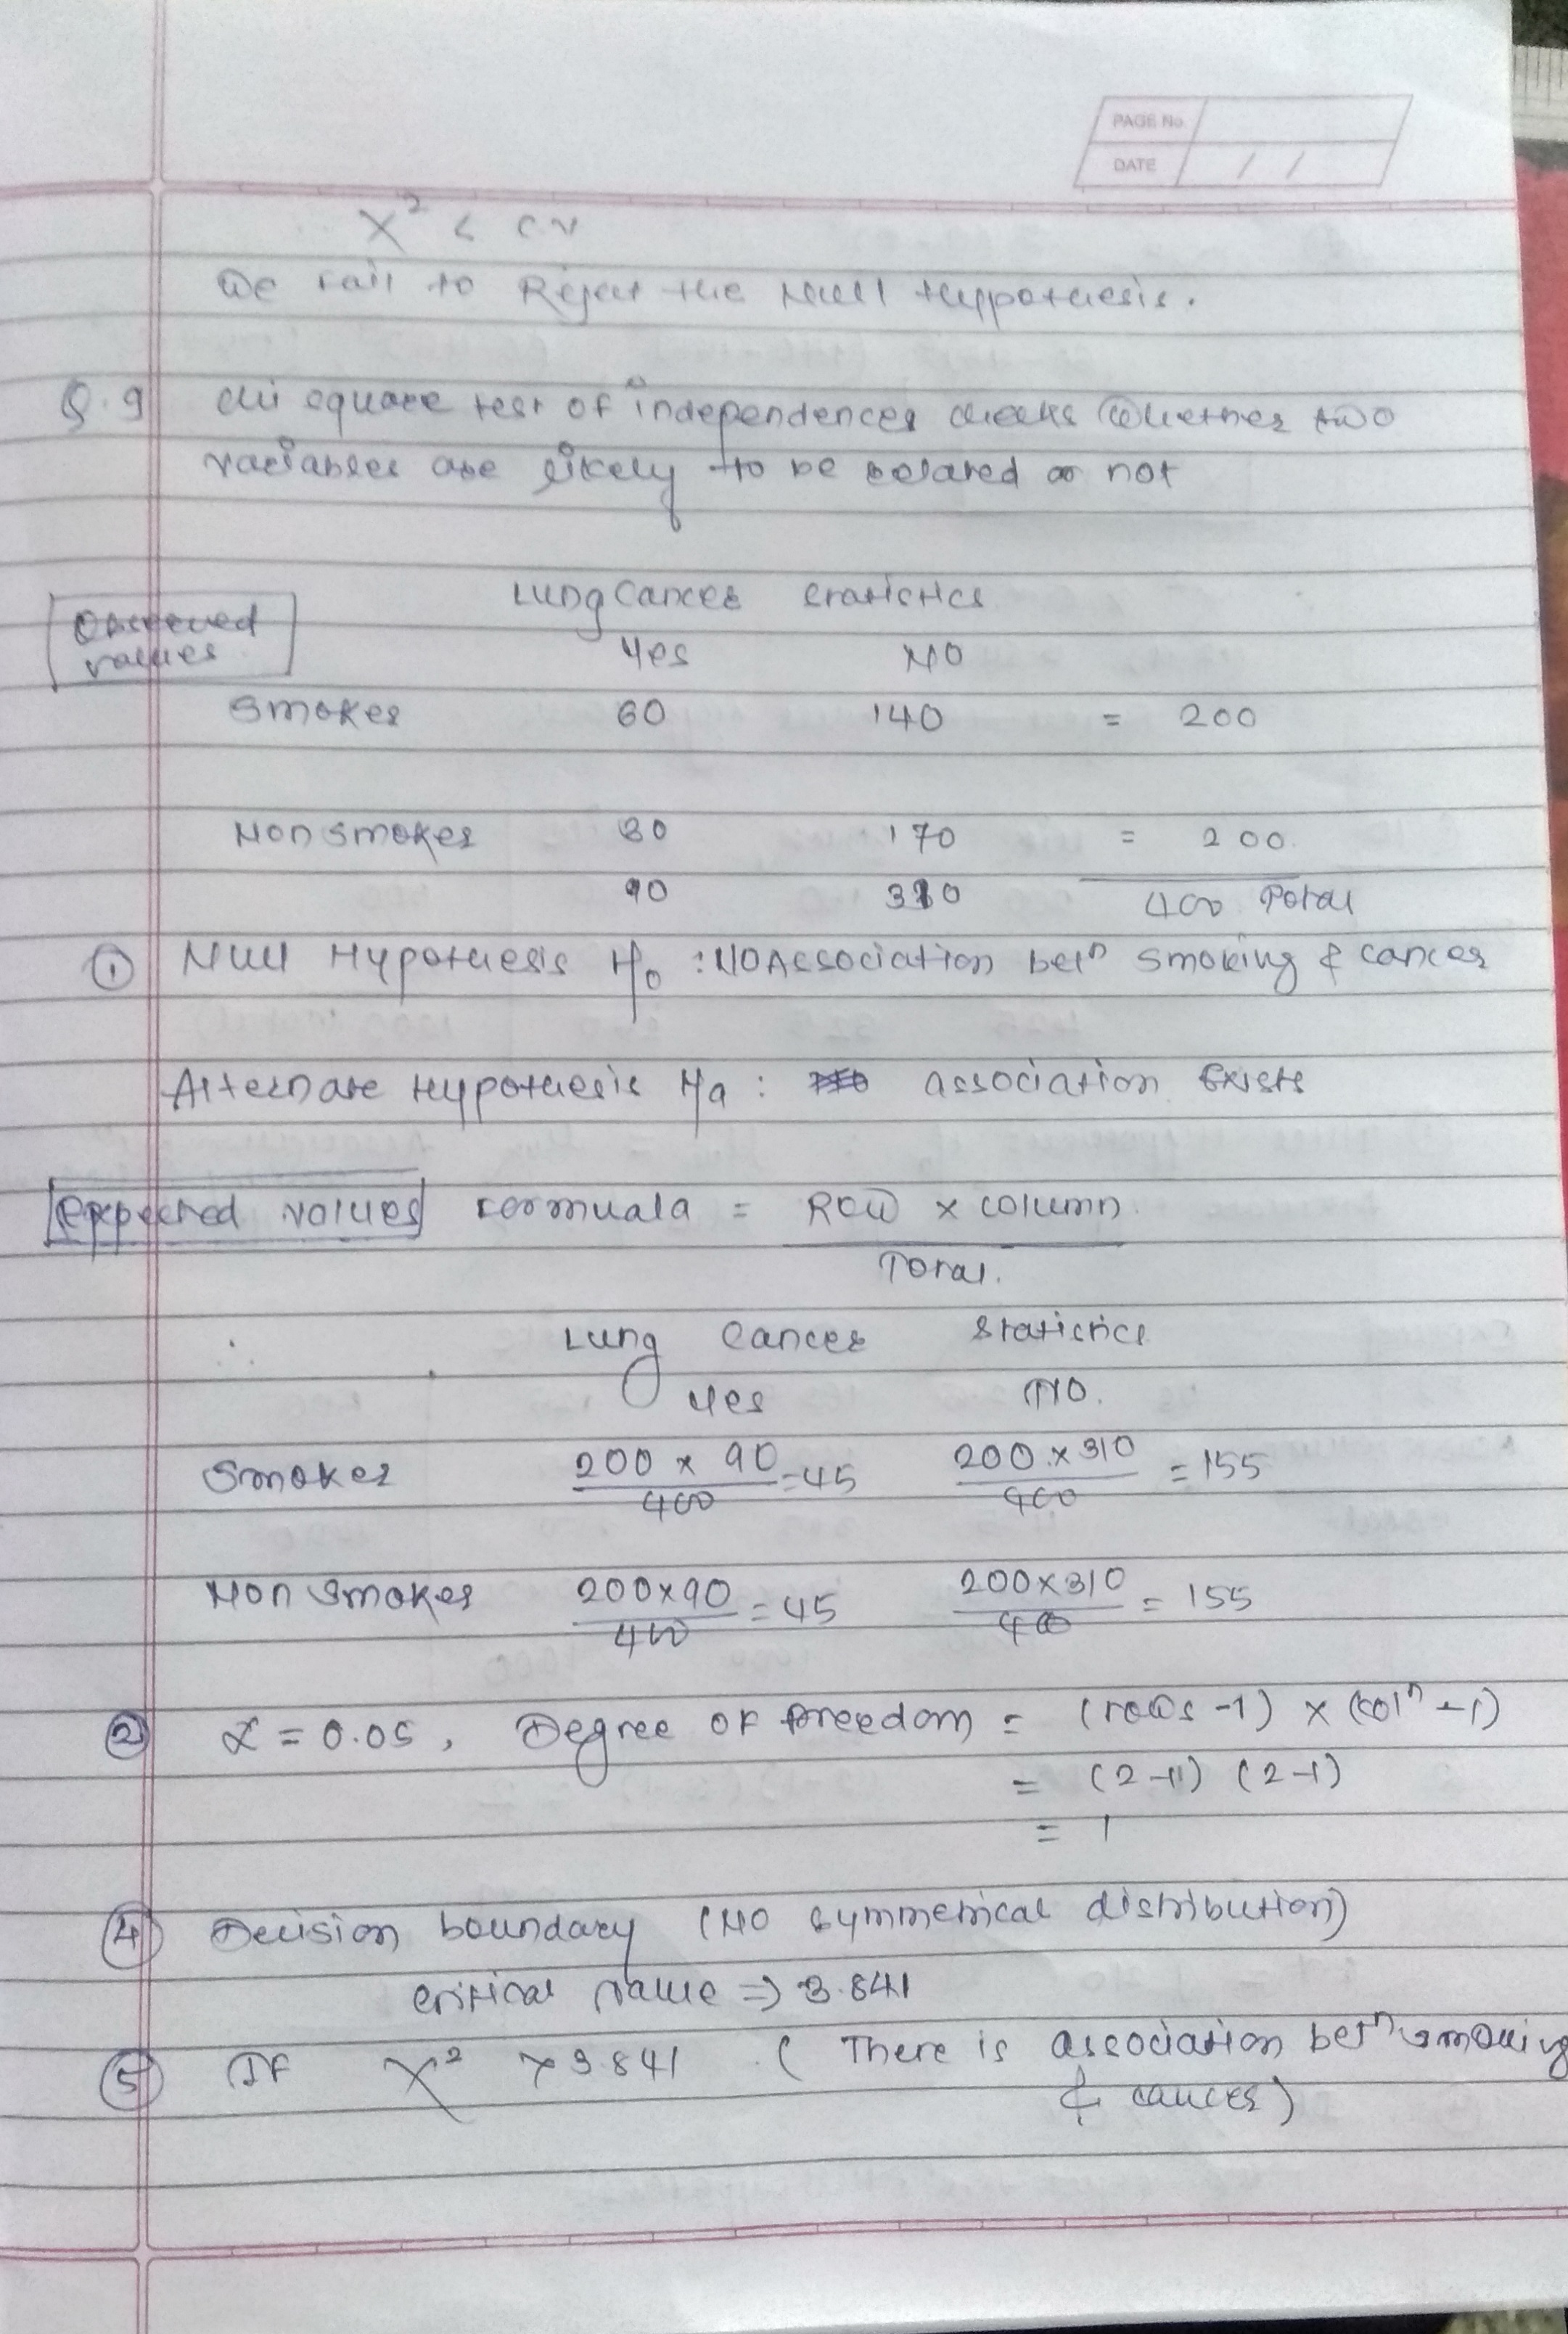 PAGE No.
DATE / /
X² < C.V
We fail to Reject the Null Hyppothesis.
Q.9 chi square test of independences checks Whether two
variables are likely to be related or not
Lung Cancer Statistics
Observed
values
Yes NO
Smoker 60 140 = 200
Non Smoker 30 170 = 200
90 310 400 Total
① Null Hypothesis H₀ : NO Association betⁿ Smoking & cancer
Alternate Hypothesis Ha : association Exists
Expected values formuala = Row x column
Total.
Lung Cancer Statistics
Yes NO.
Smoker 200 x 90 / 400 = 45 200 x 310 / 400 = 155
Non Smoker 200x90 / 400 = 45 200x310 / 400 = 155
② α = 0.05, Degree of freedom = (rows -1) x (colⁿ -1)
= (2-1) (2-1)
= 1
④ Decision boundary (NO symmetrical distribution)
critical value => 3.841
⑤ If X² > 3.841 ( There is association betⁿ smoking
& cancer)